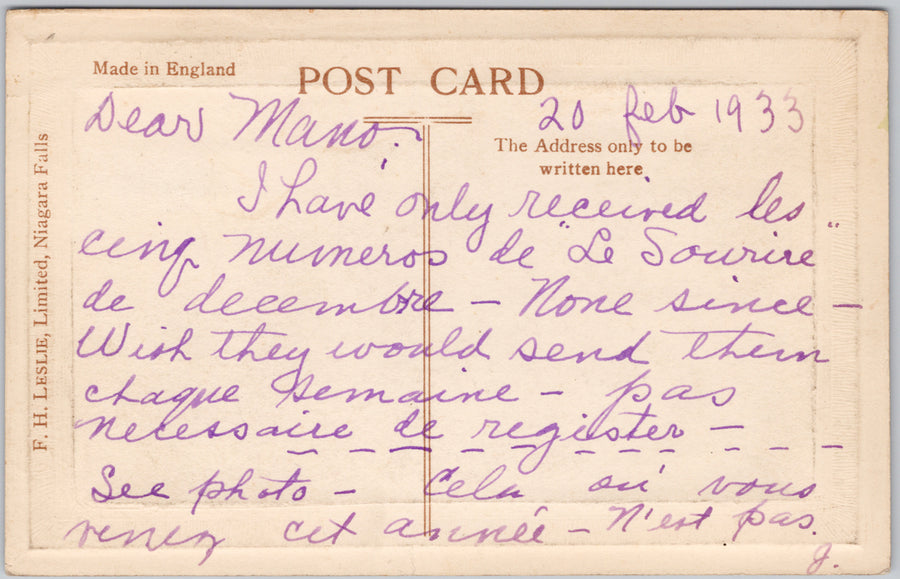 Made in England
POST CARD
F. H. LESLIE, Limited, Niagara Falls
20 Feb 1933
The Address only to be
written here
Dear Mano.
I have only received les
cinq numeros de "Le Sourire"
de decembre – None since –
Wish they would send them
chaque semaine – pas
necessaire de register –
See photo – Cela où vous
venez cet année – N'est pas.
J.